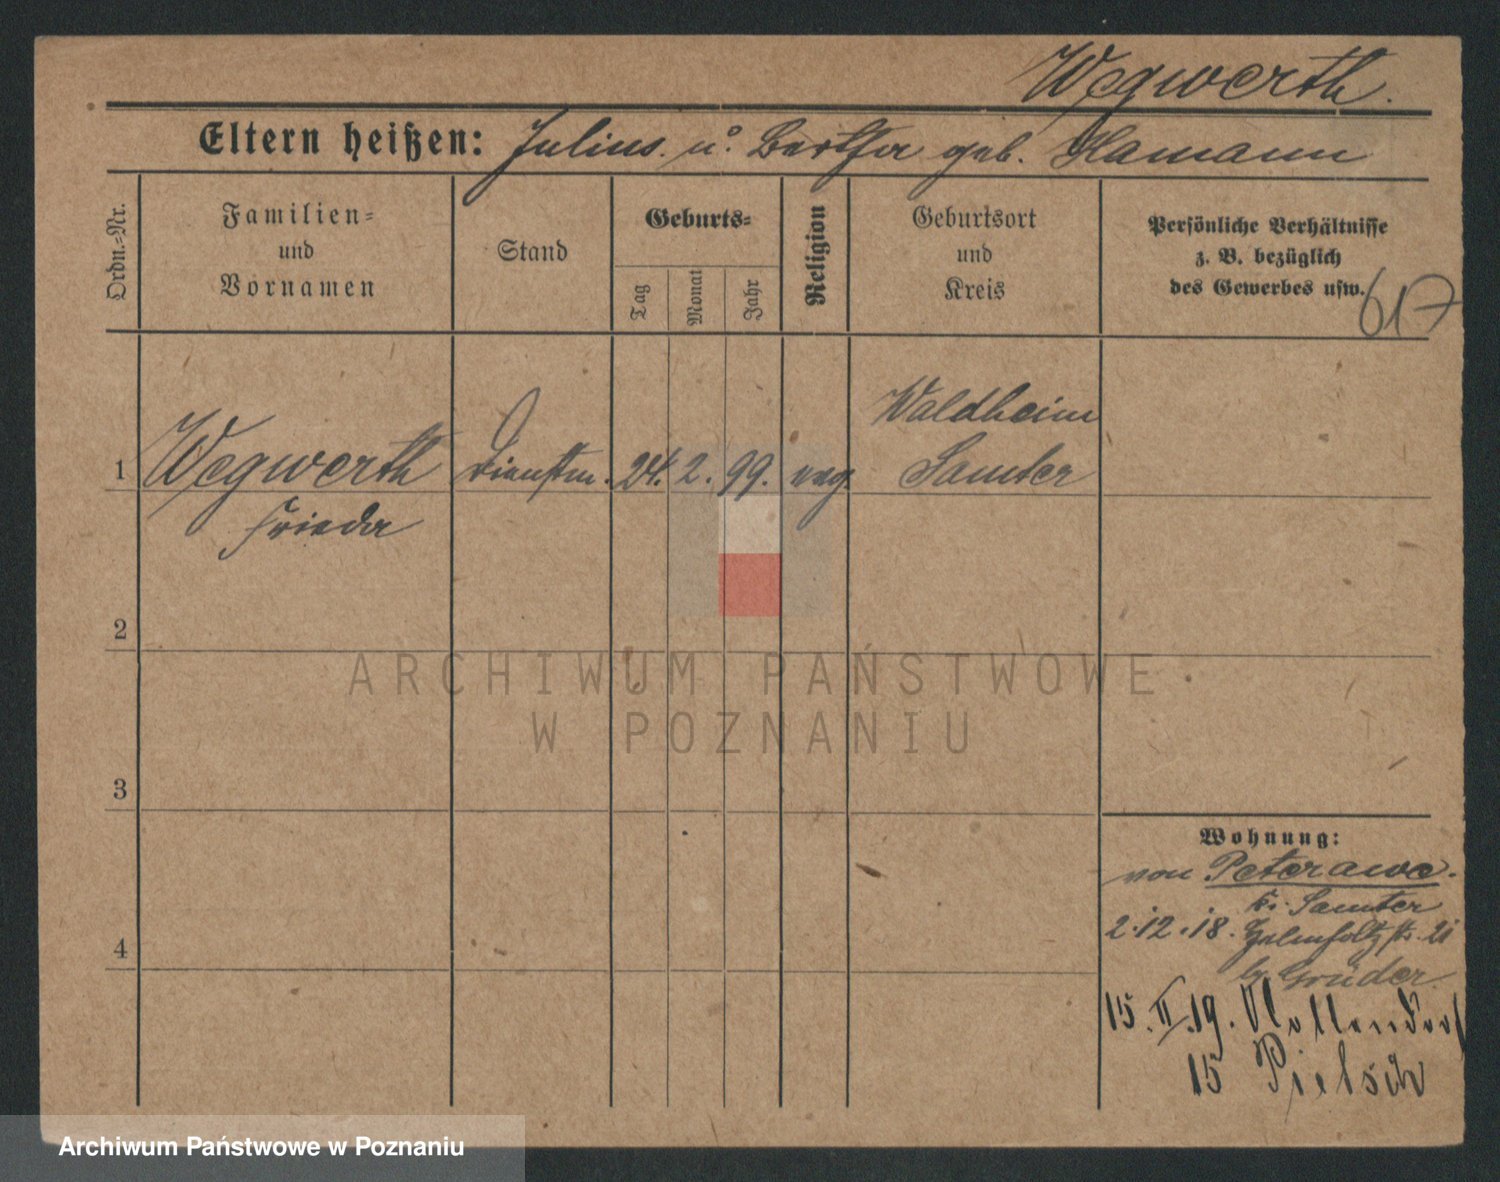 Wegwerth.
Eltern heißen: Julius. u. Bertha geb. Hamann
Ordn.-Nr.
Familien- und Vornamen
Stand
Geburts-
Tag
Monat
Jahr
Religion
Geburtsort und Kreis
Persönliche Verhältnisse
z. B. bezüglich
des Gewerbes usw.
617
1 Wegwerth Dienstm. 24. 2. 99. evg. Waldheim
Samter
Frieda
2
3
4
Wohnung:
von Peterawe.
Kr. Samter
2.12.18. Helmholtzstr. 21
b. Gruder.
15.II.19.
15
ARCHIWUM PAŃSTWOWE
W POZNANIU
Archiwum Państwowe w Poznaniu